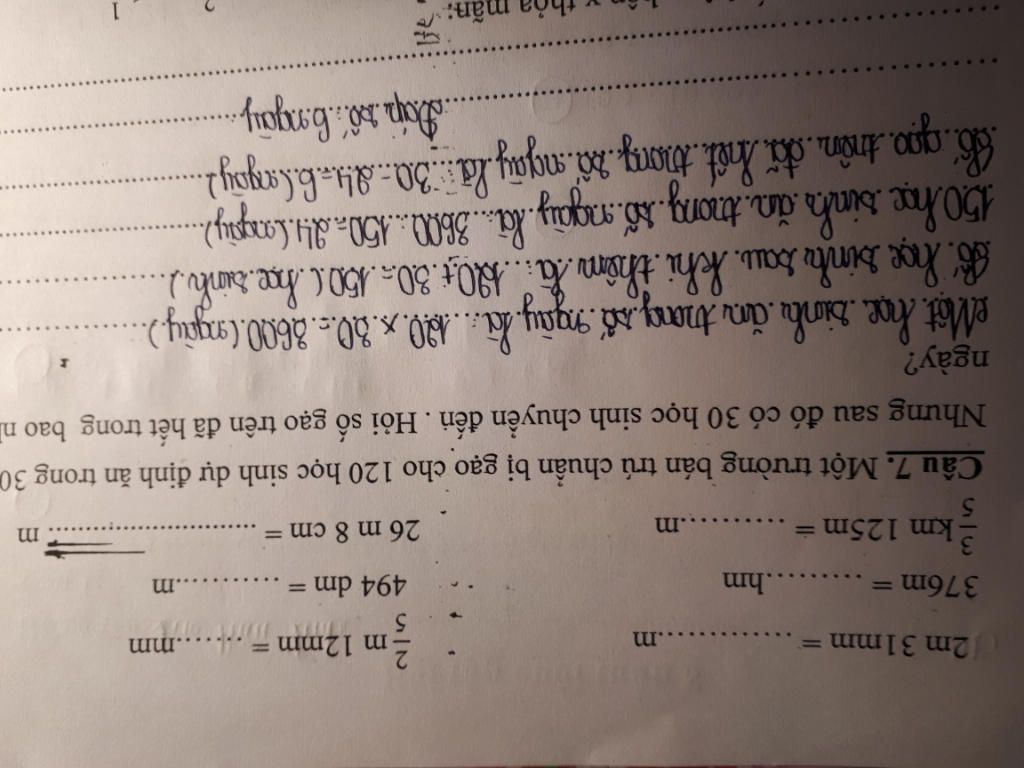 2m 31mm = ..............m
2/5 m 12mm = ........mm
376m = ..........hm
494 dm = ............m
3/5 km 125m = ...........m
26 m 8 cm = .......................... m
Câu 7. Một trường bán trú chuẩn bị gạo cho 120 học sinh dự định ăn trong 30
Nhưng sau đó có 30 học sinh chuyển đến . Hỏi số gạo trên đã hết trong bao
ngày?
Một học sinh ăn trong số ngày là: 120 x 30 = 3600 (ngày)
Số học sinh sau khi thêm là: 120 + 30 = 150 ( học sinh )
150 học sinh ăn trong số ngày là: 3600 : 150 = 24 (ngày)
Số gạo trên đã hết trong số ngày là: 30 - 24 = 6 (ngày)
Đáp số: 6 ngày
x thỏa mãn:
2
1